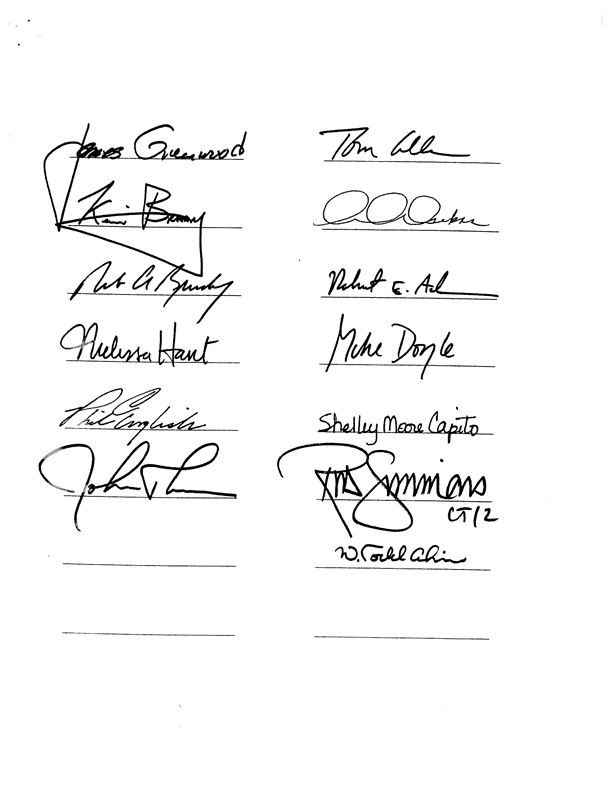 James Greenwood
Tom Allen
Kevin Brady
Robert E.
Melissa Hart
Mike Doyle
Phil English
Shelley Moore Capito
John
Rob Simmons
CT/2
W. Todd Akin